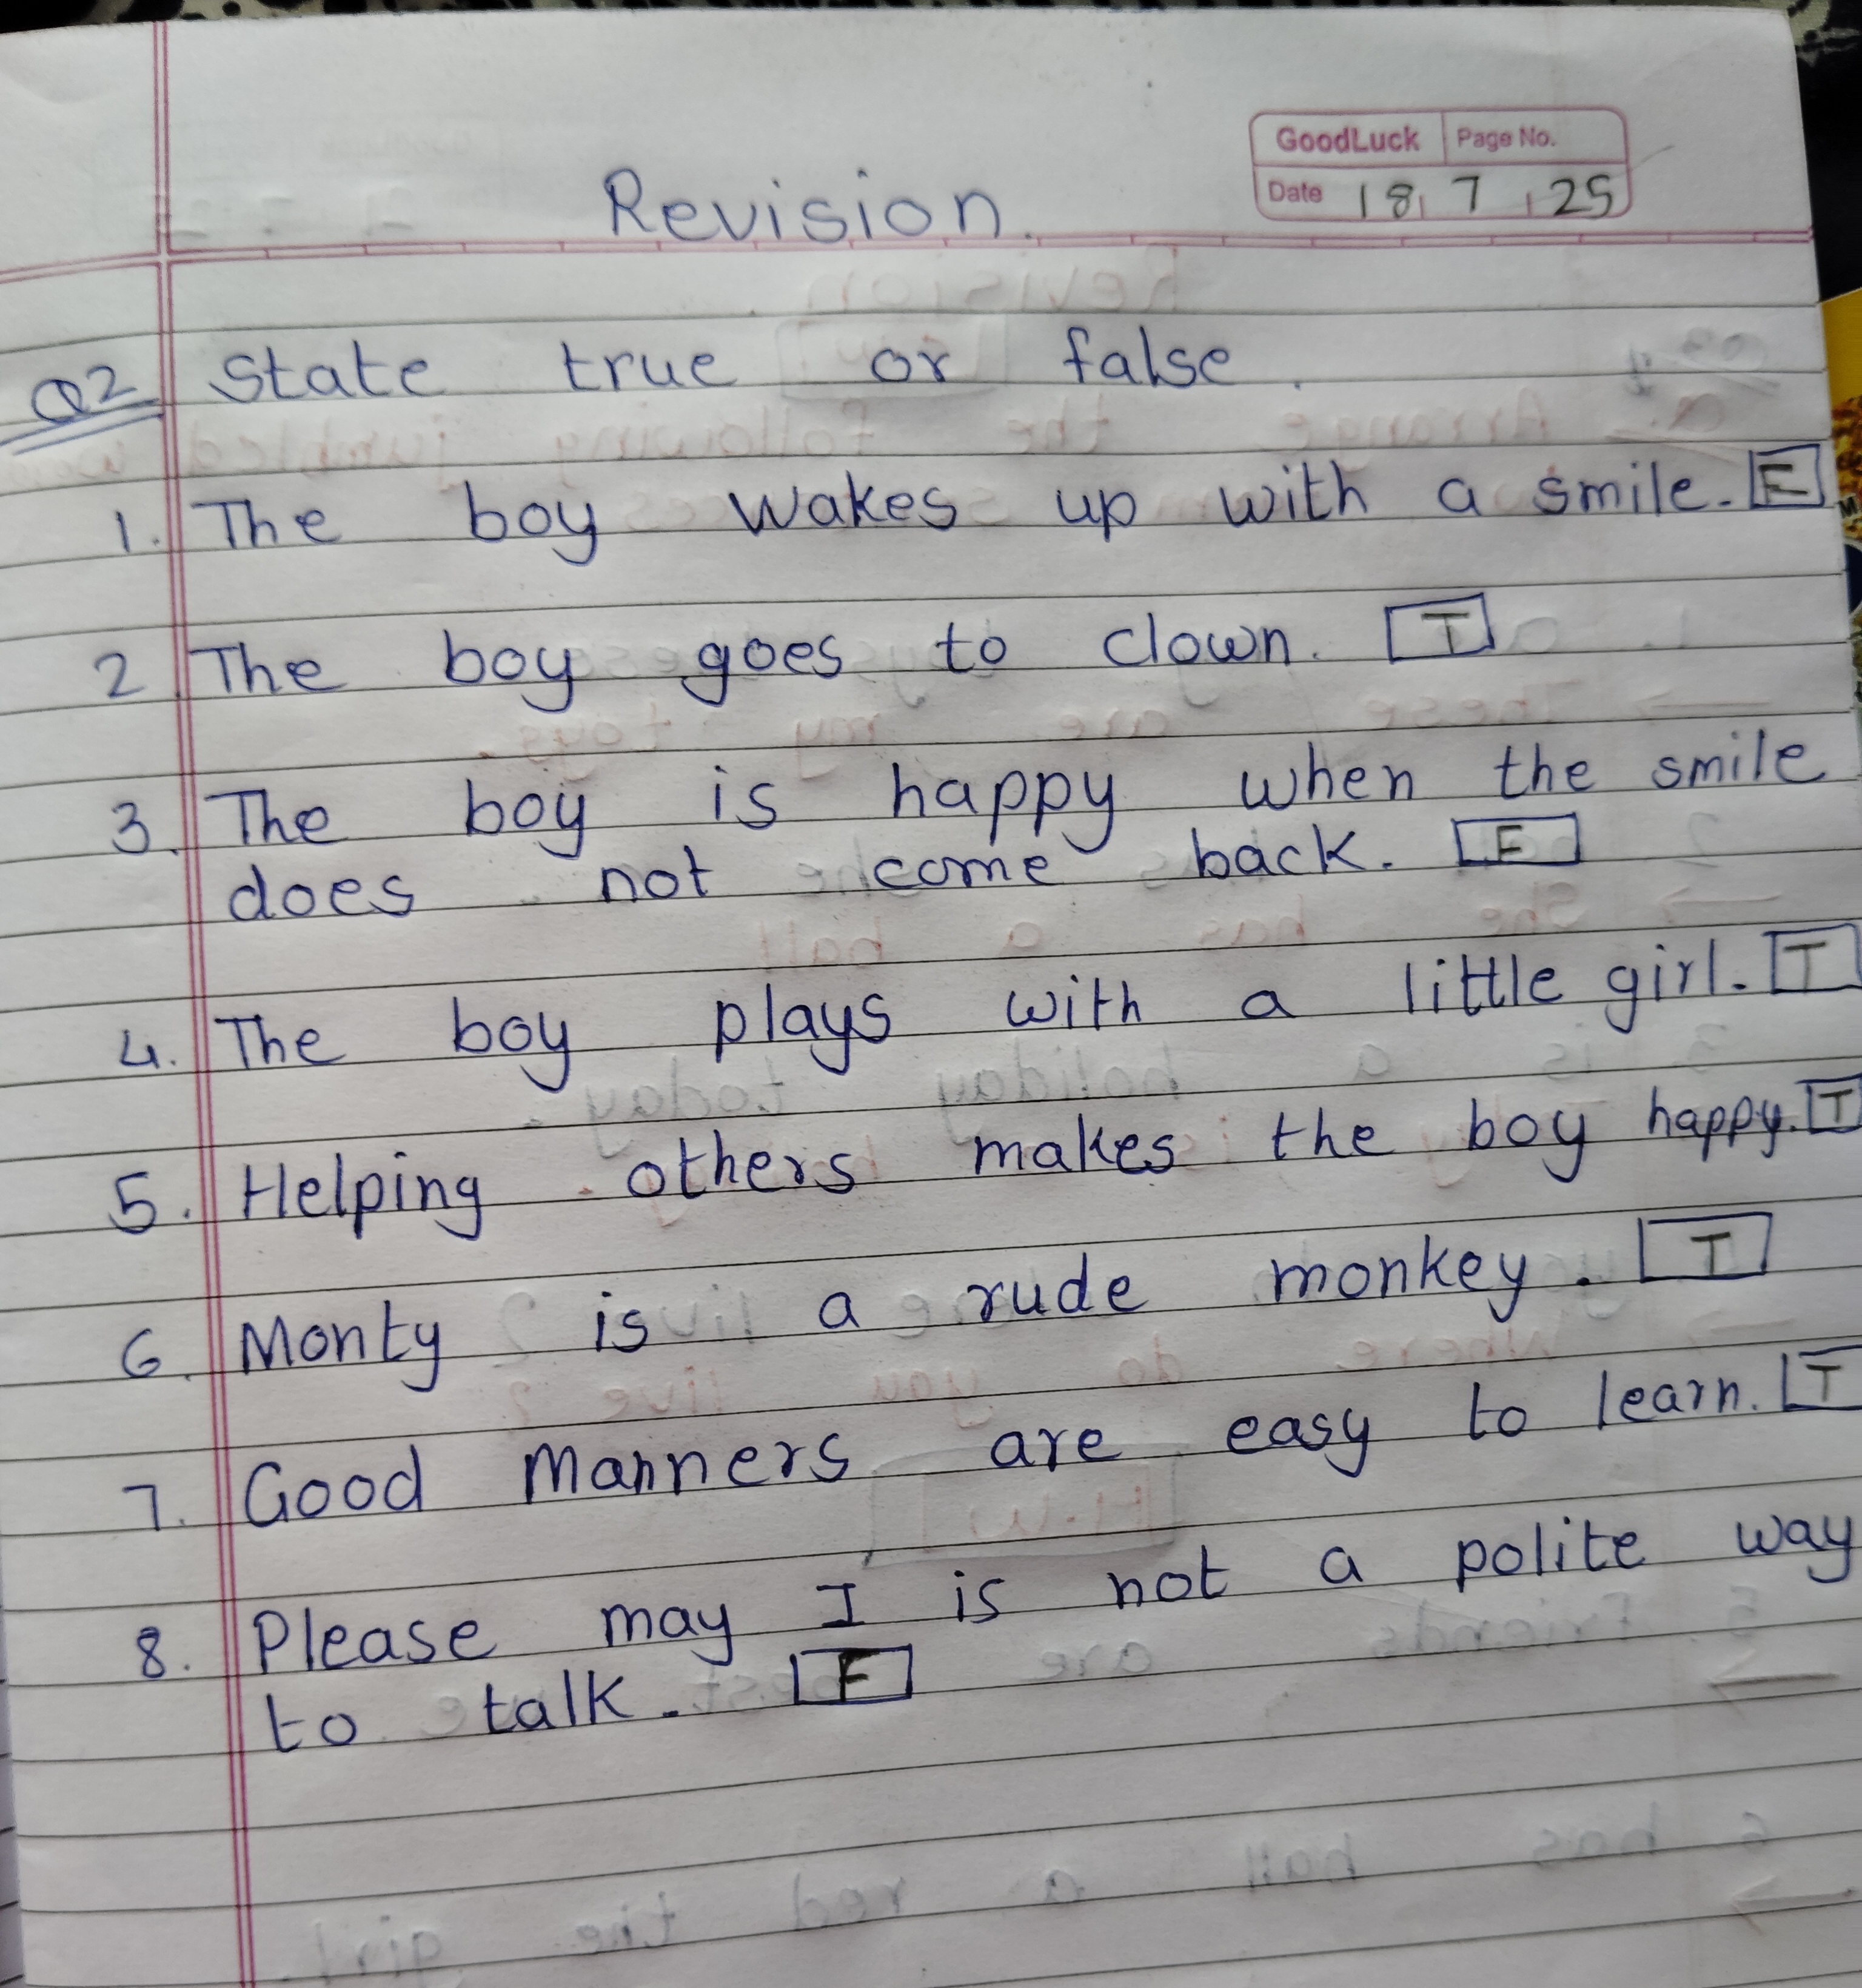 GoodLuck Page No.
Date 18 7 25
Revision.
Q2 State true or false.
1. The boy wakes up with a smile. F
2. The boy goes to clown. T
3. The boy is happy when the smile
does not come back. F
4. The boy plays with a little girl. T
5. Helping others makes the boy happy. T
6. Monty is a rude monkey. T
7. Good Manners are easy to learn. T
8. Please may I is not a polite way
to talk. F